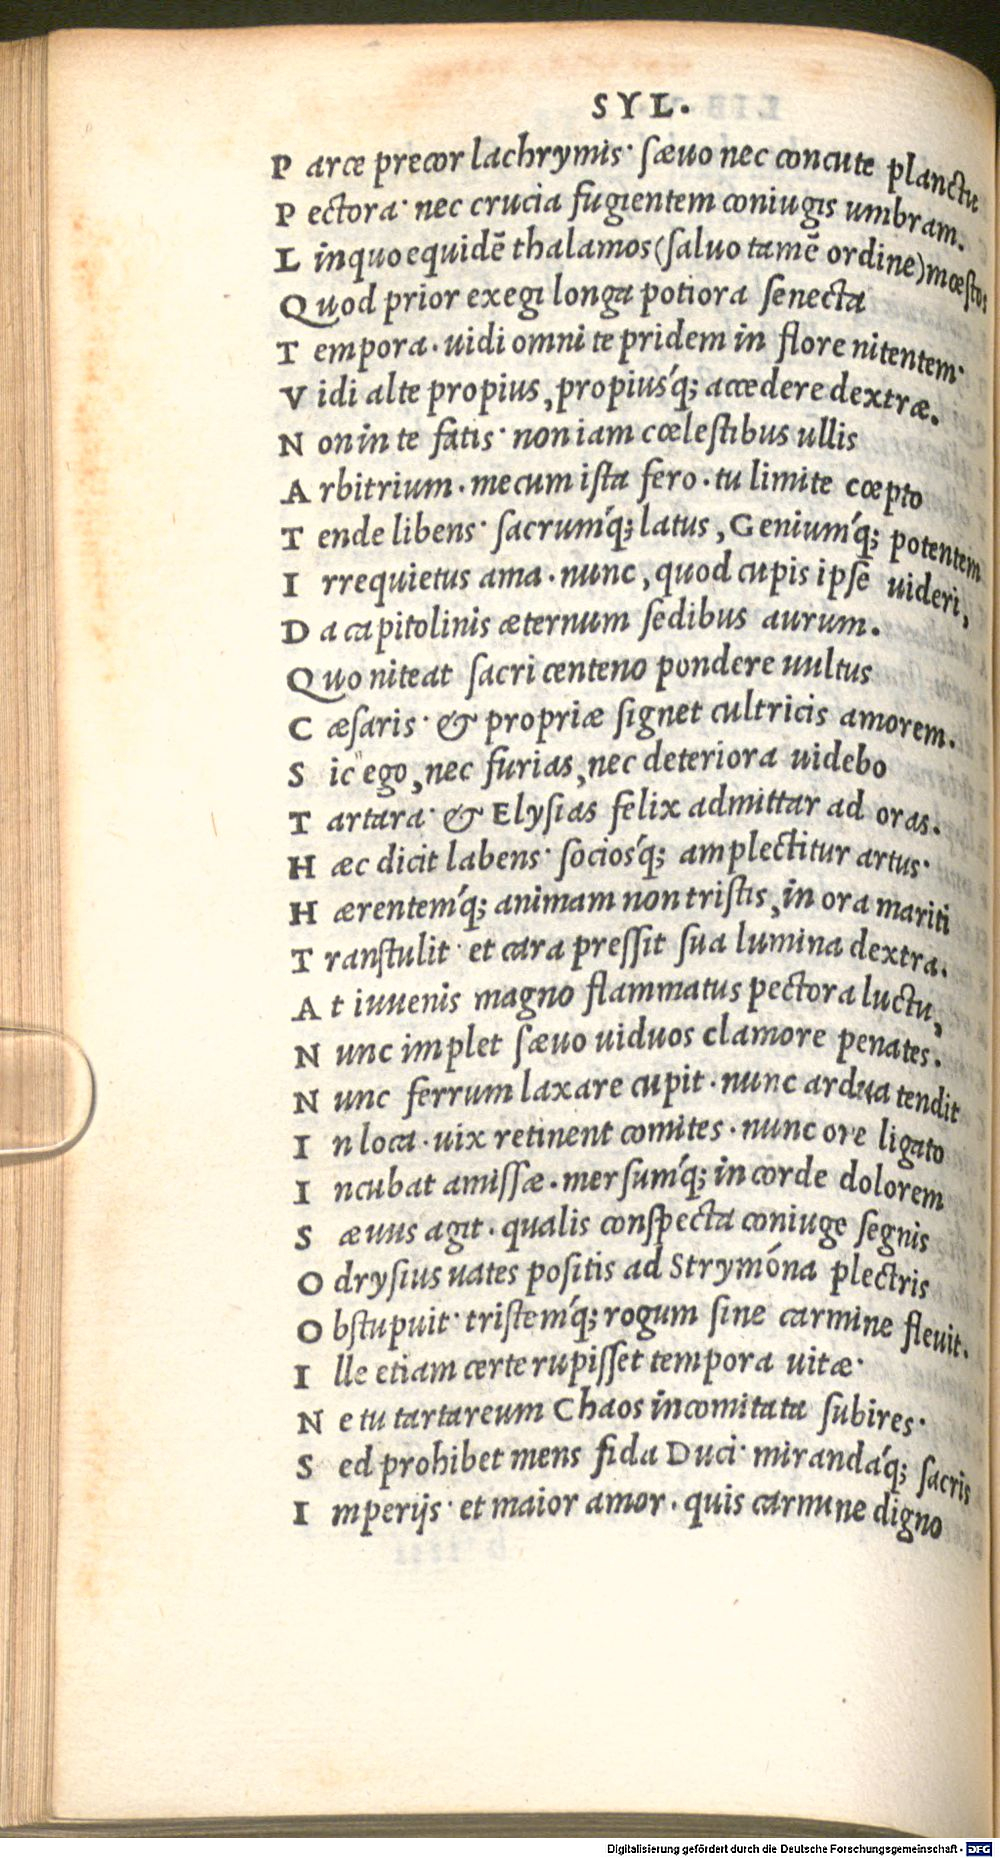 SYL.
Parce precor lachrymis· sæuo nec concute planctu
Pectora· nec crucia fugientem coniugis umbram.
Linquo equidē thalamos(saluo tamē ordine)mœstos
Quod prior exegi longa potiora senecta
Tempora· uidi omni te pridem in flore nitentem·
Vidi alte propius, propiusq́; accedere dextræ.
Non in te fatis· non iam cœlestibus ullis
Arbitrium· mecum ista fero· tu limite cœpto
Tende libens· sacrumq́; latus, Geniumq́; potentem
Irrequietus ama· nunc, quod cupis ipse uideri,
Da capitolinis æternum sedibus aurum.
Quo niteat sacri centeno pondere uultus
Cæsaris· & propriæ signet cultricis amorem.
Sic ego, nec furias, nec deteriora uidebo
Tartara· & Elysias felix admittar ad oras.
Hæc dicit labens· sociosq́; amplectitur artus·
Hærentemq́; animam non tristis, in ora mariti
Transtulit· et cara pressit sua lumina dextra.
At iuuenis magno flammatus pectora luctu,
Nunc implet sæuo uiduos clamore penates.
Nunc ferrum laxare cupit· nunc ardua tendit
In loca· uix retinent comites· nunc ore ligato
Incubat amissæ· mersumq́; in corde dolorem
Sæuus agit· qualis conspecta coniuge segnis
Odrysius uates positis ad Strymóna plectris
Obstupuit· tristemq́; rogum sine carmine fleuit.
Ille etiam certe rupisset tempora uitæ·
Ne tu tartareum Chaos incomitata subires·
Sed prohibet mens fida Duci· mirandáq; sacris
Imperijs· et maior amor· quis carmine digno
Digitalisierung gefördert durch die Deutsche Forschungsgemeinschaft - DFG